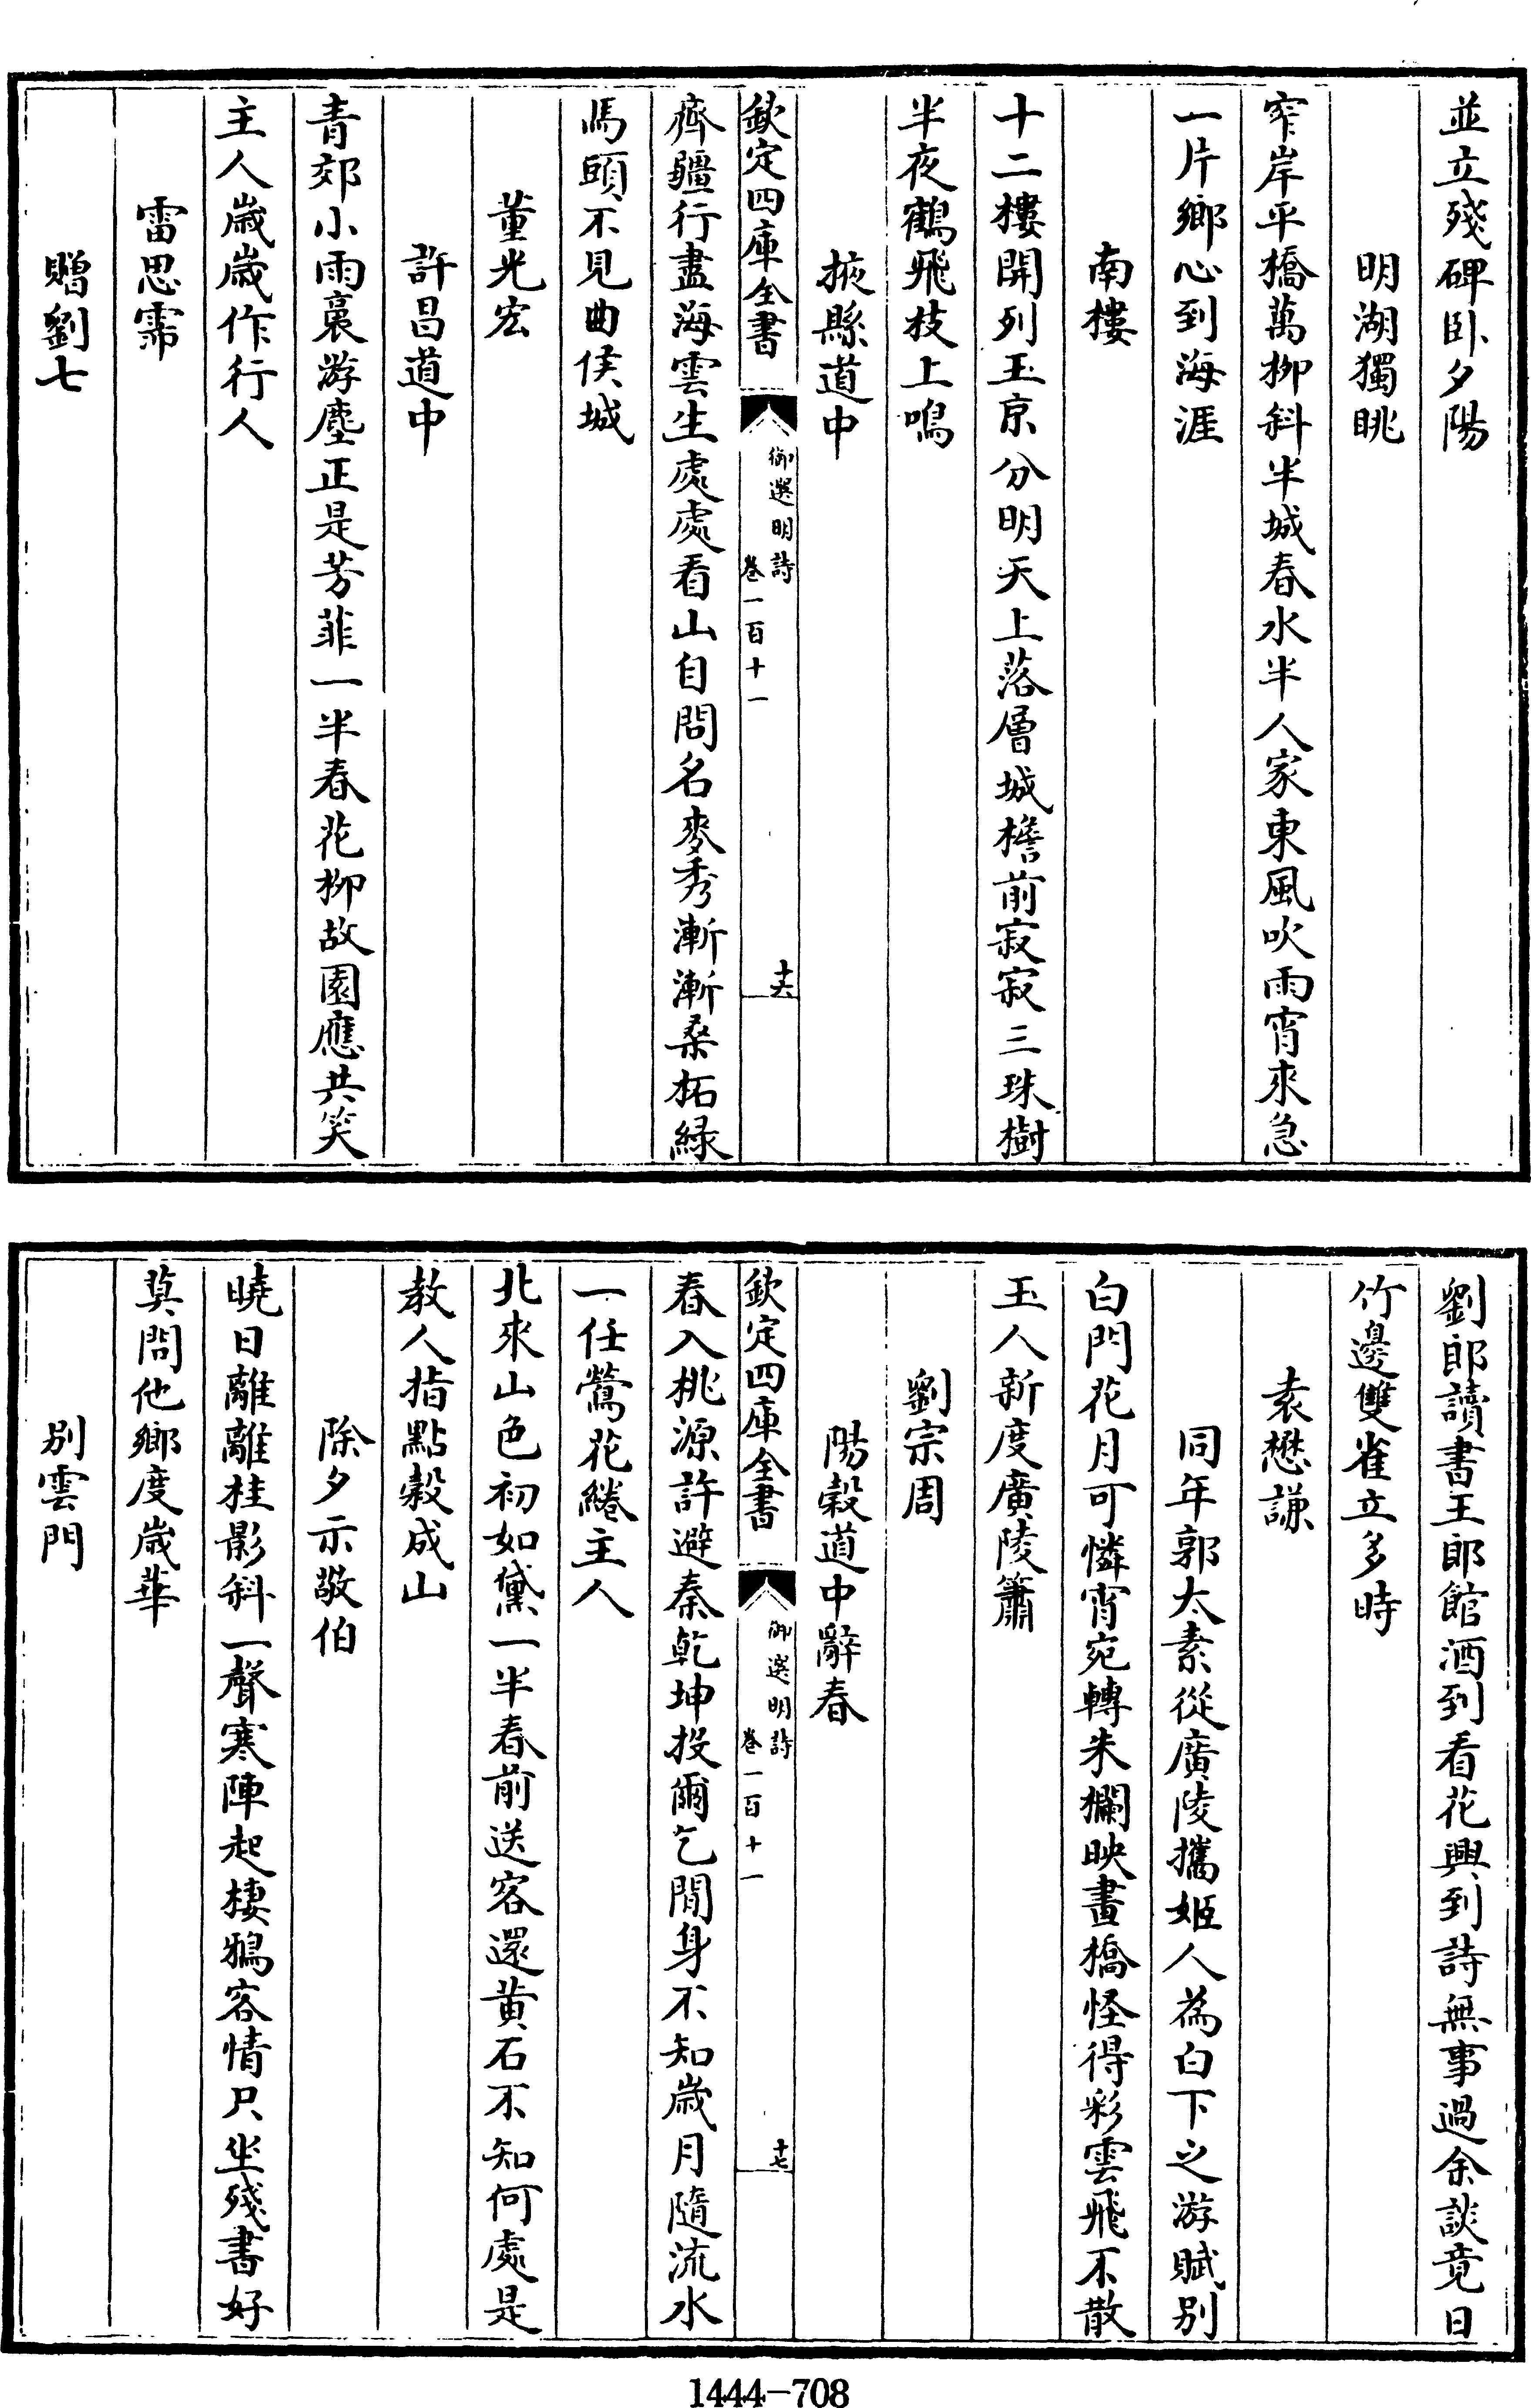 並立殘碑卧夕陽
明湖獨眺
窄岸平橋萬栁斜半城春水半人家東風吹雨宵來急
一片鄉心到海涯
南樓
十二樓開列玉京分明天上落層城檐前寂寂三珠樹
半夜鶴飛枝上鳴
掖縣道中
欽定四庫全書
御選明詩
卷一百十一
十六
齊疆行盡海雲生處處看山自問名麥秀漸漸桑柘緑
馬頭不見曲侯城
董光宏
許昌道中
青郊小雨裛游塵正是芳菲一半春花栁故園應共笑
主人歲歲作行人
雷思霈
贈劉七
劉郎讀書王郎館酒到看花興到詩無事過余談竟日
竹邊雙雀立多時
袁懋謙
同年郭太素從廣陵攜姬人為白下之游賦别
白門花月可憐宵宛轉朱欄映畫橋怪得彩雲飛不散
玉人新度廣陵簫
劉宗周
陽穀道中辭春
欽定四庫全書
御選明詩
卷一百十一
十七
春入桃源許避秦乾坤投爾乞閒身不知歲月隨流水
一任鶯花綣主人
北來山色初如黛一半春前送客還黄石不知何處是
教人指點穀成山
除夕示敬伯
曉日離離挂影斜一聲寒陣起棲鴉客情只坐殘書好
莫問他鄉度歲華
别雲門
1444-708